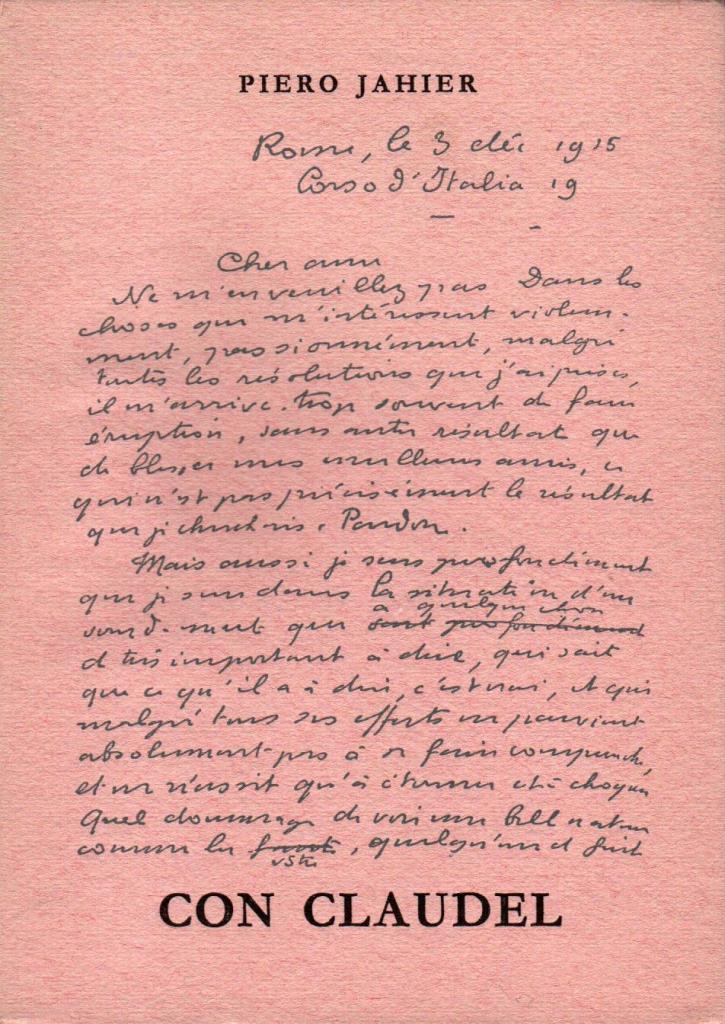 PIERO JAHIER
Rome, le 3 déc 1915
Corso d'Italia 19
Cher ami
Ne m'en veuillez pas Dans les
choses qui m'intéressent violem-
ment, passionnément, malgré
toutes les résolutions que j'ai prises,
il m'arrive trop souvent de faire
éruption, sans autre résultat que
de blesser mes meilleurs amis, ce
qui n'est pas précisément le résultat
que je cherchais. Pardon.
Mais aussi je sens profondément
que je suis dans la situation d'un
sourd-muet qui a quelque chose
d très important à dire, qui sait
que ce qu'il a à dire, c'est vrai, et qui
malgré tous ses efforts ne parvient
absolument pas à se faire comprendre,
et ne réussit qu'à étonner et à choquer
Quel dommage de voir une belle nature
comme la vôtre, quelqu'un d
CON CLAUDEL